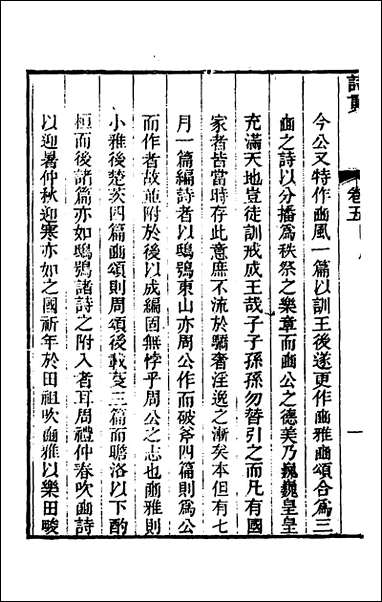 今公又特作豳風一篇以訓王後遂更作豳雅豳頌合爲三
豳之詩以分播爲秩祭之樂章而豳公之德美乃巍巍皇皇
充滿天地豈徒訓戒成王哉子子孫孫勿替引之而凡有國
家者皆當時存此意庶不流於驕奢淫逸之漸矣本但有七
月一篇編詩者以鴟鴞東山亦周公作而破斧四篇則爲公
而作者故並附於後以成編固無悖乎周公之志也豳雅則
小雅後楚茨四篇豳頌則周頌後載芟三篇而瞻洛以下酌
桓而後諸篇亦如鴟鴞諸詩之附入者耳周禮仲春吹豳詩
以迎暑仲秋迎寒亦如之國祈年於田祖吹豳雅以樂田畯
卷五